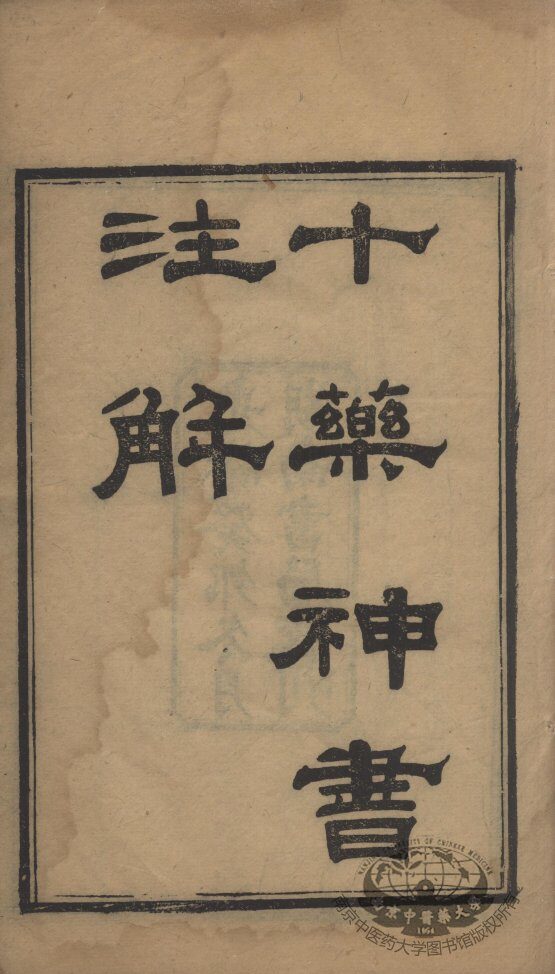 十藥神書
注解
南京中医药大学图书馆版权所有
南京中醫藥大學
1954